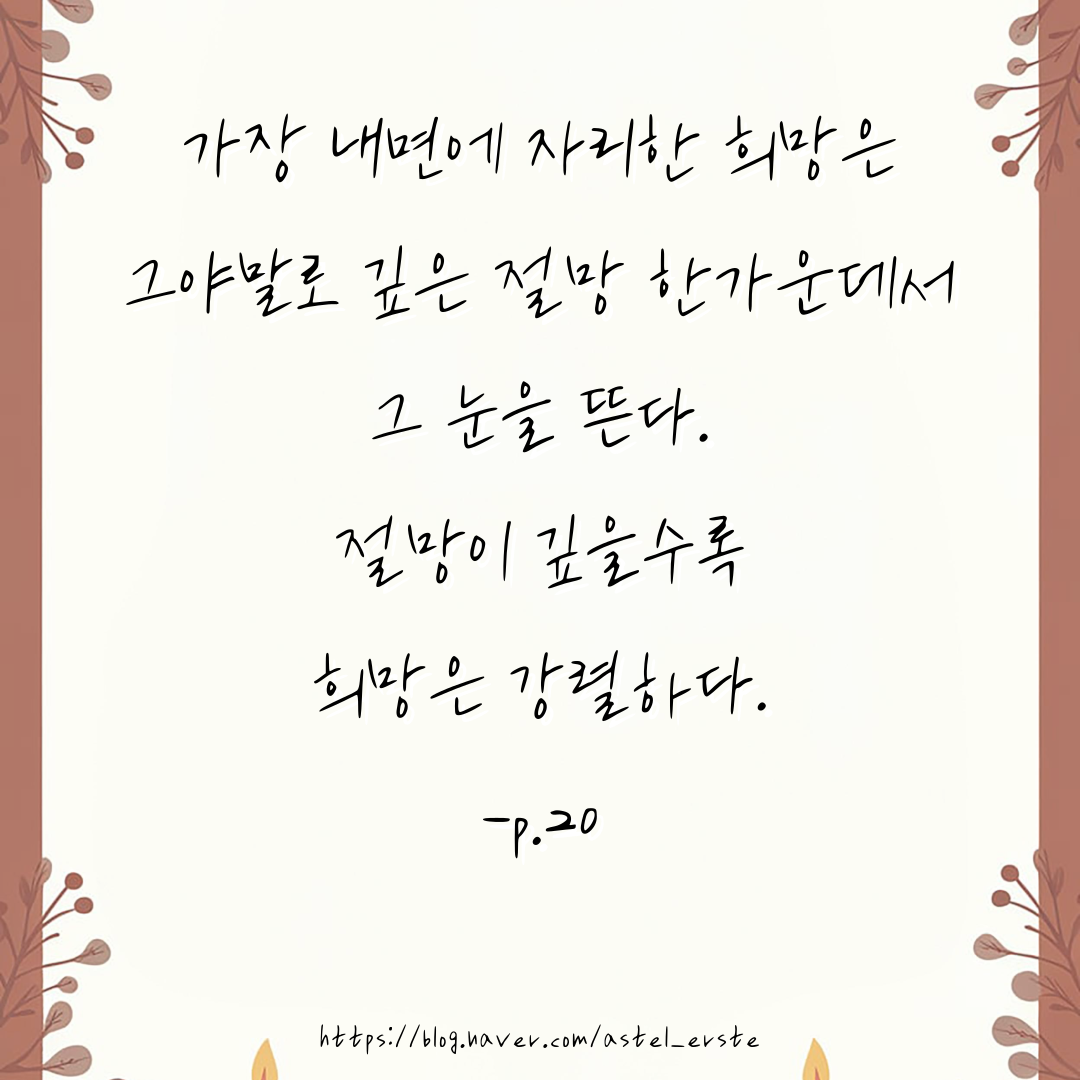 가장 내면에 자리한 희망은
그야말로 깊은 절망 한가운데서
그 눈을 뜬다.
절망이 깊을수록
희망은 강렬하다.
-p.20
https://blog.naver.com/astel_erste